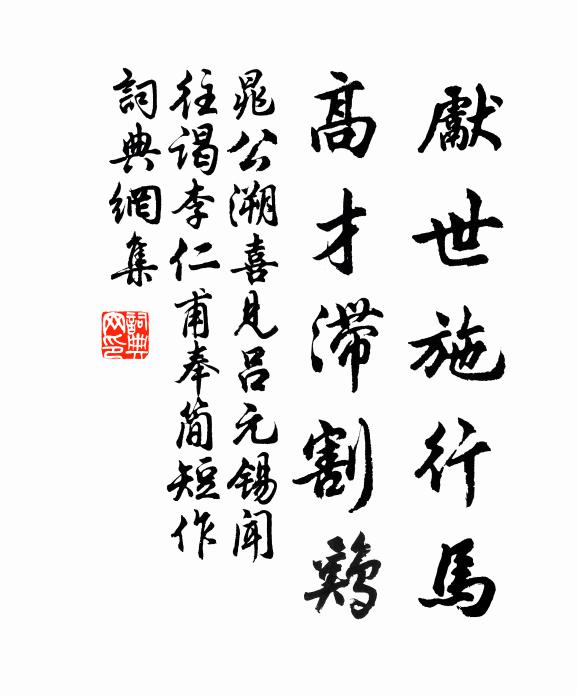 獻世施行馬
高才滯割鷄
晁公溯喜見呂元錫聞
往謁李仁甫奉简短作
詞典網集
詞典网印